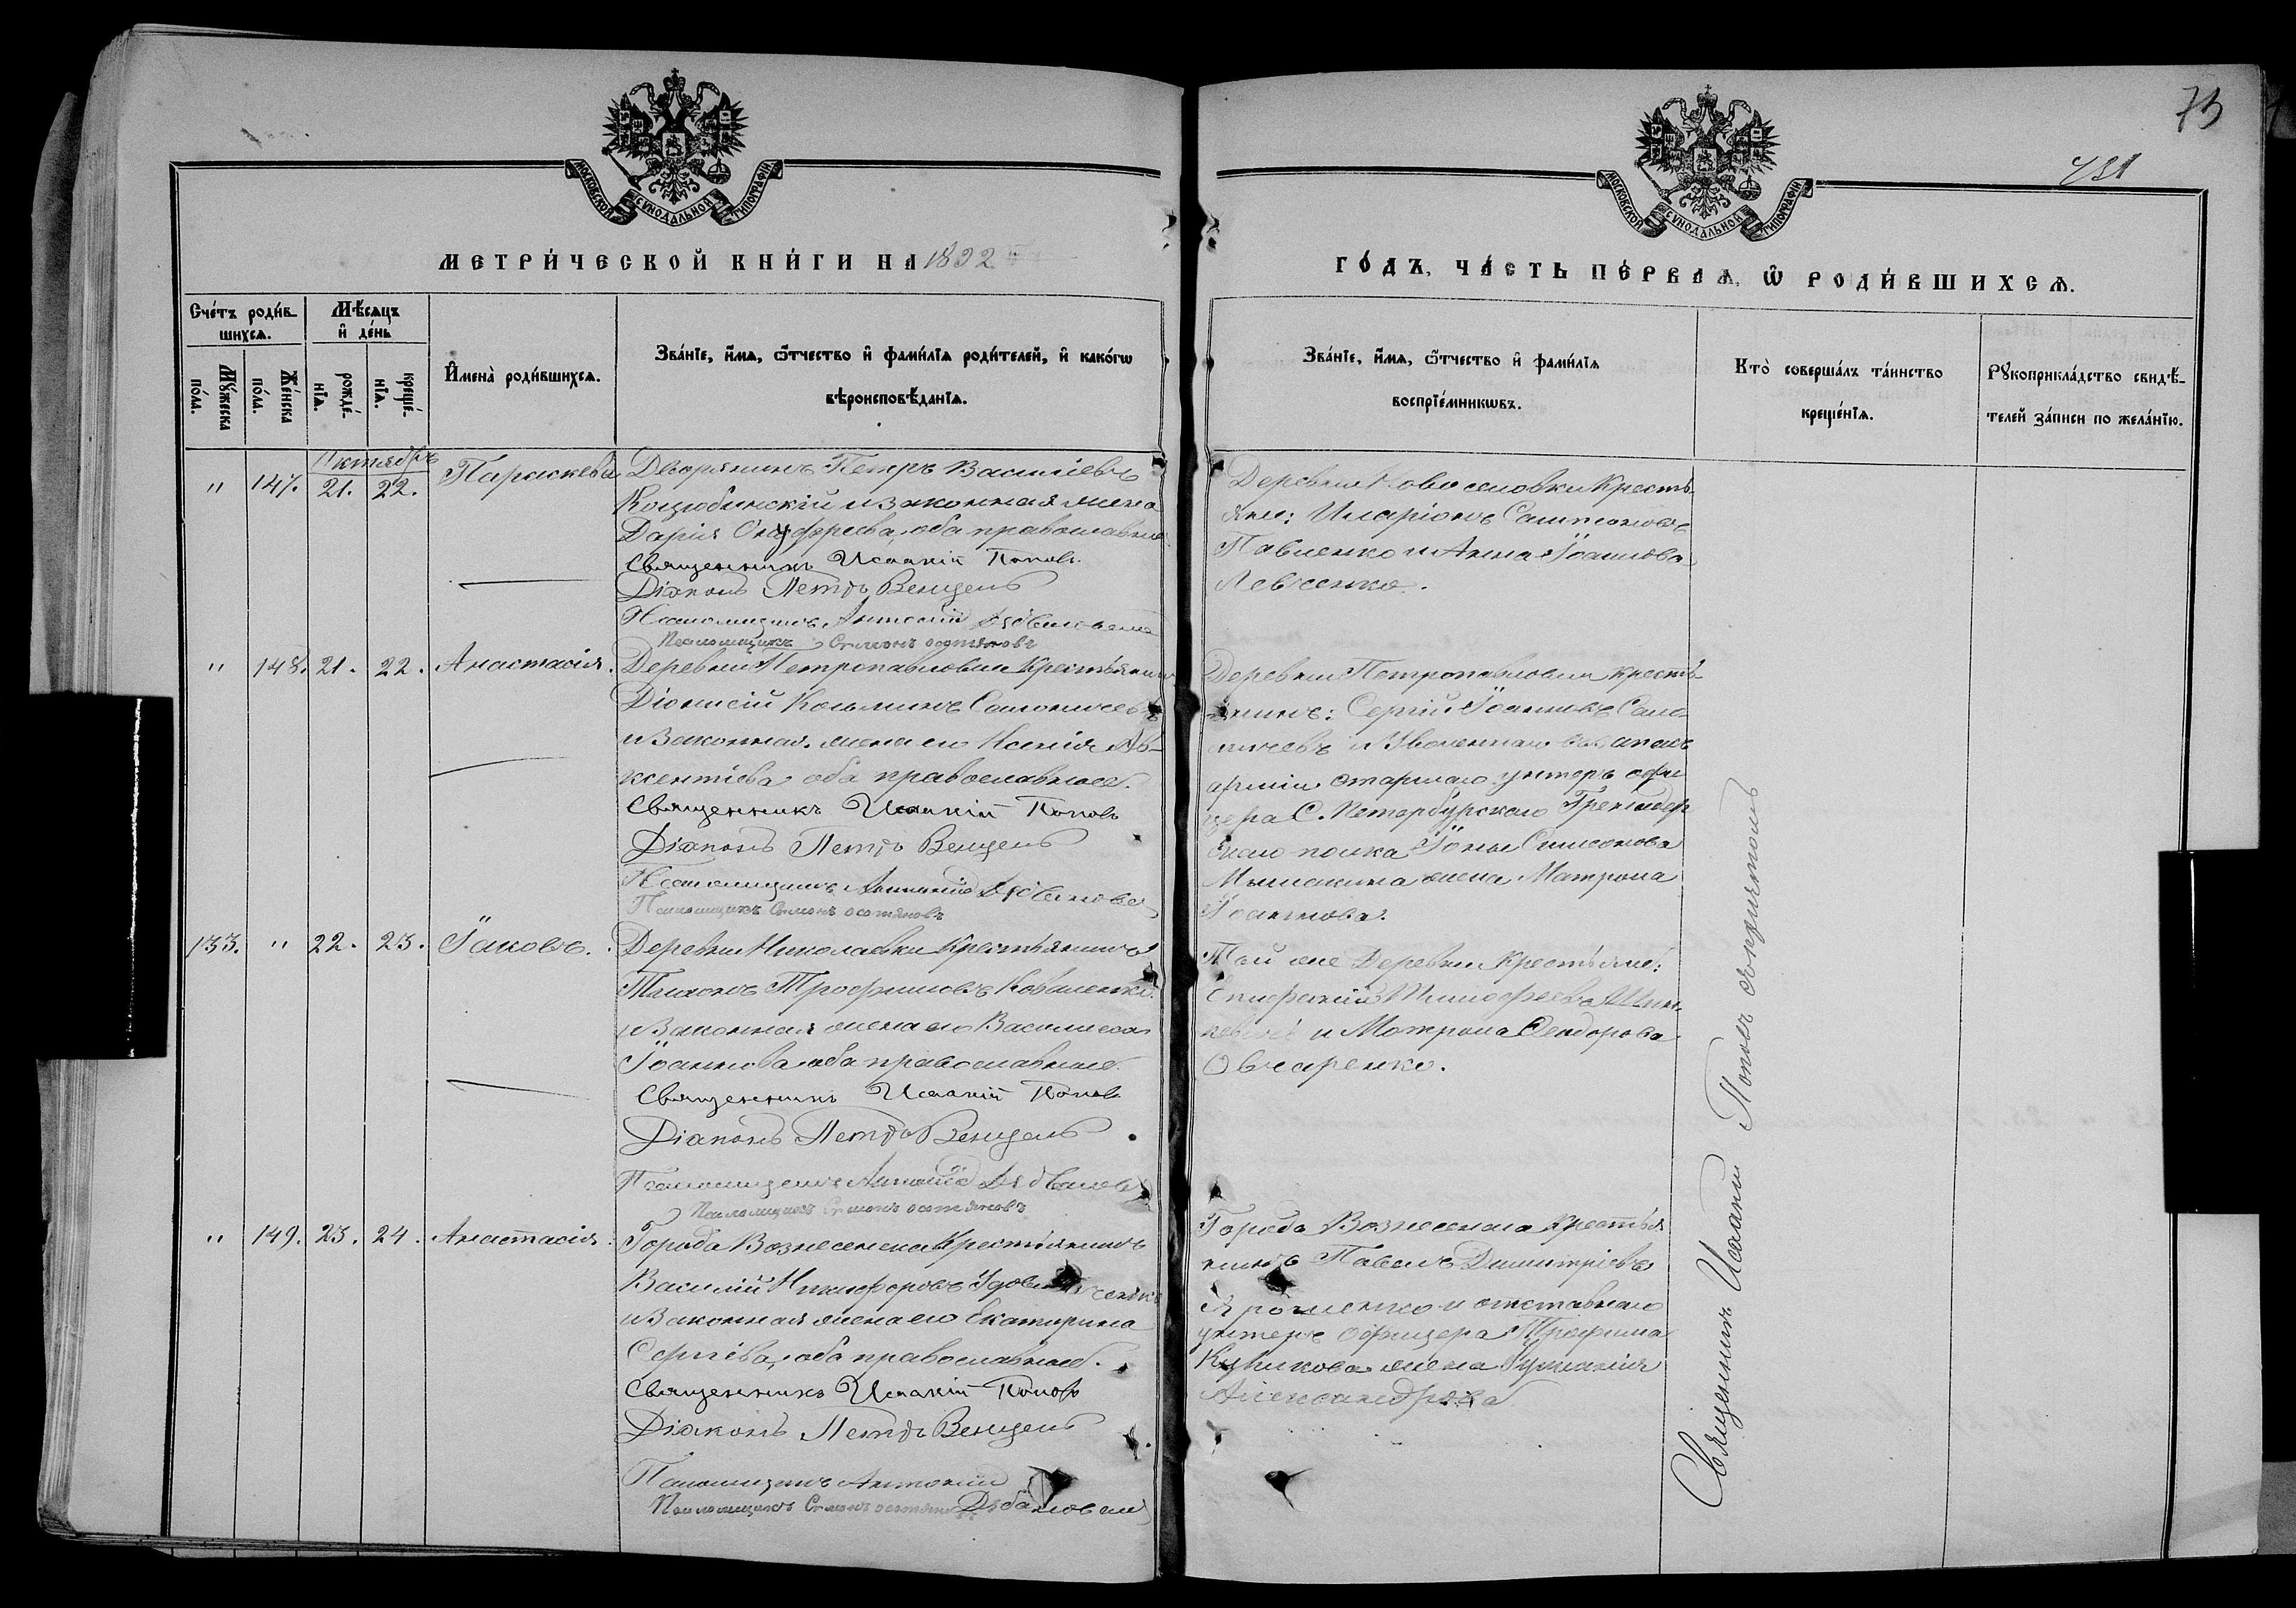 73
431
МОСКОВСКОЙ СѴНОДАЛЬНОЙ ТИПОГРАФІИ
МОСКОВСКОЙ СѴНОДАЛЬНОЙ ТИПОГРАФІИ
МЕТРИ́ЧЕСКОЙ КНИ́ГИ НА 1892
ГО́ДЪ, ЧА́СТЬ ПЕ́РВАѦ, Ѽ РОДИ́ВШИХСѦ.
Сче́тъ роди́в-
шихсѧ.
Мꙋ́жеска
по́ла.
Же́нска
по́ла.
Мѣ́сѧцъ
и҆ де́нь
рожде́-
нїѧ.
креще́-
нїѧ.
И҆мена̀ роди́вшихсѧ.
Зва́нїе, и҆́мѧ, ѻ҆́тчество и҆ фами́лїѧ роди́телей, и҆ како́гѡ
вѣроисповѣ́данїѧ.
Зва́нїе, и҆́мѧ, ѻ҆́тчество и҆ фами́лїѧ
воспрїе́мникѡвъ.
Кто̀ соверша́лъ та́инство
креще́нїѧ.
Рꙋкоприкла́дство свидѣ́-
телей за́писи по жела́нїю.
Октябрь
" 147. 21. 22. Параскева
Дворянинъ Петръ Василіевъ
Коцюбинскій и законная жена
Дарія Онуфріева, оба православные
Священникъ Исаакій Поповъ
Діаконъ Петръ Венцель
Псаломщикъ Антоній
Псаломщикъ Симонъ
Деревни Новоселовки Кресть-
яне: Иларіонъ Сампсоновъ
Павленко и Анна Іоаннова
Левченко.
" 148. 21. 22. Анастасія.
Деревни Петропавловки Крестьянинъ
Діонисій Косьминъ
и законная жена его Ксенія Ав-
ксентіева оба православные.
Священникъ Исаакій Поповъ
Діаконъ Петръ Венцель
Псаломщикъ Антоній
Псаломщикъ Симонъ
Деревни Петропавловки кресть-
янинъ: Сергій Іоанновъ
и Уволеннаго въ запасъ
арміи старшаго унтеръ офи
цера С. Петербургскаго Гренадер
скаго полка Іоны Симеонова
жена Матрона
Іоаннова.
133. " 22. 23. Іаковъ.
Деревни Николаевки Крестьянинъ
Трофимовъ Коваленко
и законная жена его Василисса
Іоаннова оба православные.
Священникъ Исаакій Поповъ
Діаконъ Петръ Венцель
Псаломщикъ Антоній
Псаломщикъ Симонъ
Той же Деревни Крестьяне:
Епифаній Тимофеевъ
и Матрона Феодорова
Овчаренко.
" 149. 23. 24. Анастасія.
Города Вознесенска Крестьянинъ
Василій Никифоровъ
и законная жена его Екатерина
Сергіева, оба православные.
Священникъ Исаакій Поповъ
Діаконъ Петръ Венцель
Псаломщикъ Антоній
Псаломщикъ Симонъ
Города Вознесенска Крестья
нинъ Павелъ Димитріевъ
Ярошенко и отставнаго
унтеръ офицера Трофима
Куликова жена
Александрова
Священникъ Исаакій Поповъ